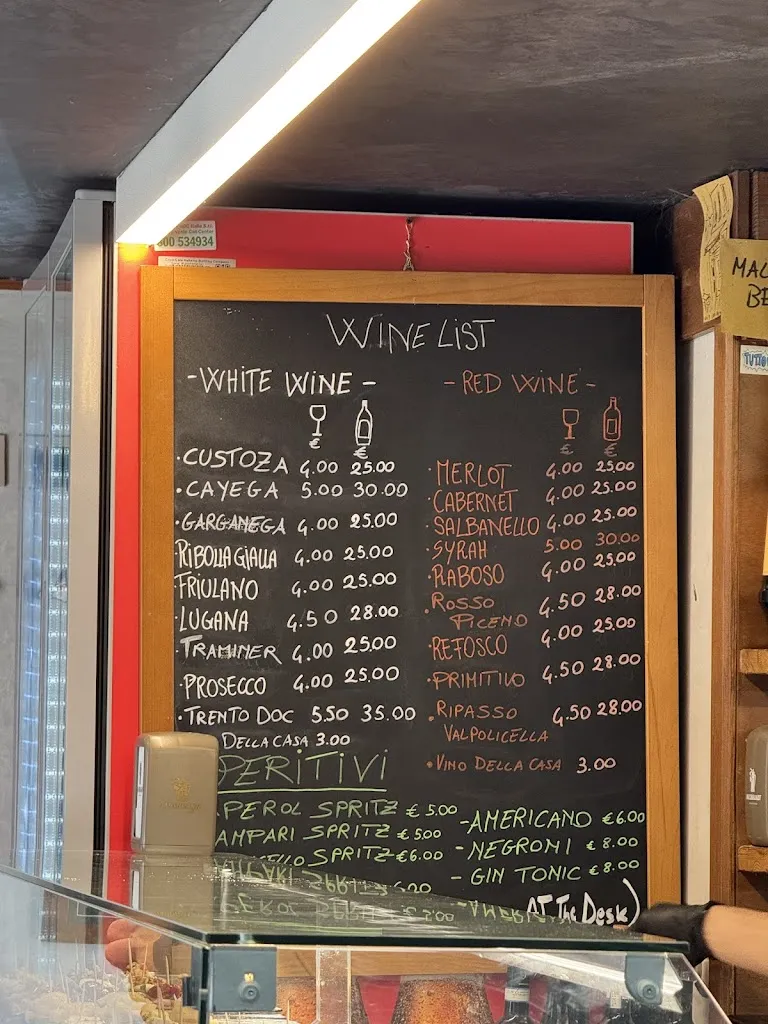 800 534934
WINE LIST
-WHITE WINE-
€ €
·CUSTOZA 4.00 25.00
·CAYEGA 5.00 30.00
·GARGANEGA 4.00 25.00
·RIBOLLA GIALLA 4.00 25.00
FRIULANO 4.00 25.00
·LUGANA 4.50 28.00
·TRAMINER 4.00 25.00
·PROSECCO 4.00 25.00
·TRENTO DOC 5.50 35.00
DELLA CASA 3.00
-RED WINE-
€ €
·MERLOT 4.00 25.00
·CABERNET 4.00 25.00
·SALBANELLO 4.00 25.00
·SYRAH 5.00 30.00
·RABOSO 4.00 25.00
·ROSSO
PICENO 4.50 28.00
·REFOSCO 4.00 25.00
·PRIMITIVO 4.50 28.00
·RIPASSO 4.50 28.00
VALPOLICELLA
·VINO DELLA CASA 3.00
PERITIVI
PEROL SPRITZ € 5.00
AMPARI SPRITZ € 5.00
SPRITZ €6.00
-AMERICANO €6.00
-NEGRONI €8.00
-GIN TONIC €8.00
AT THE DESK)
MAL
BE
TUTTO